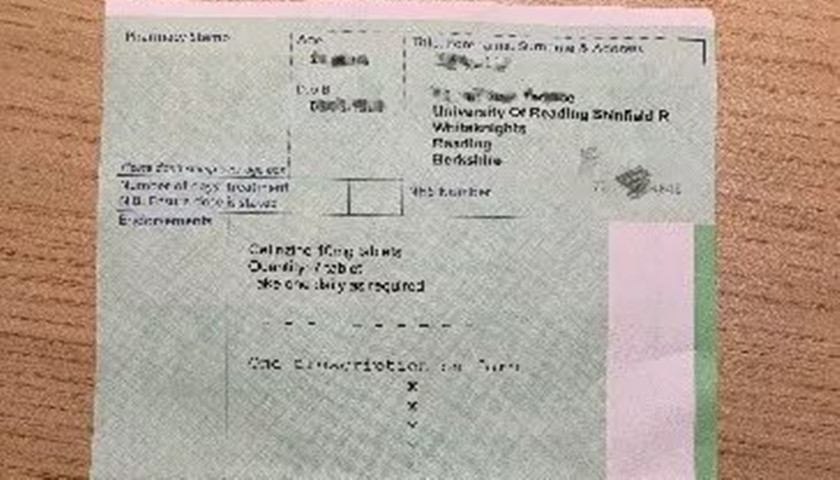 Pharmacy Stamp
Age
Title, Forename, Surname & Address
D.o.B
University Of Reading Shinfield R
Whiteknights
Reading
Berkshire
Please don't stamp over age box
Number of days' treatment
N.B. Ensure dose is stated
NHS Number
Endorsements
Cetirizine 10mg tablets
Quantity: 7 tablet
Take one daily as required
One prescription on form
x
x